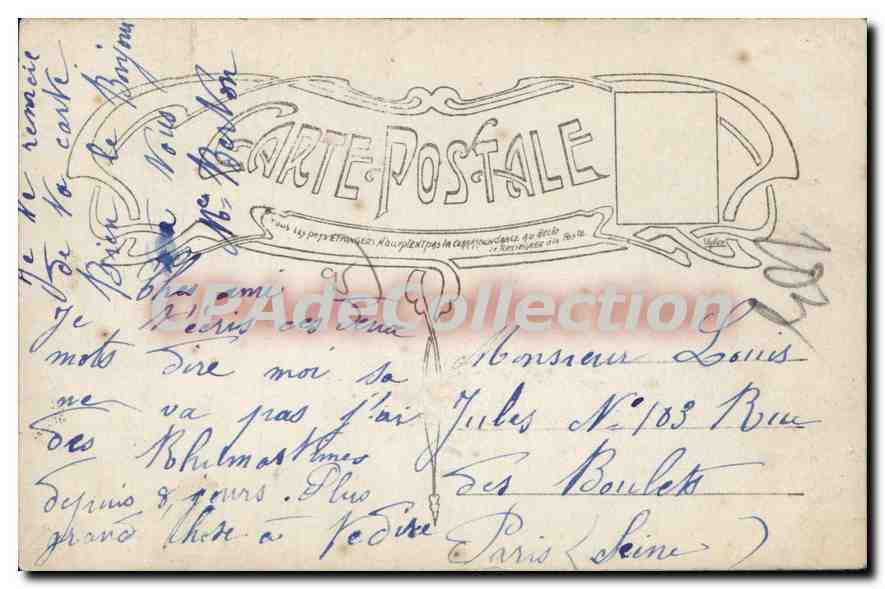 CARTE POSTALE
Tous les pays étrangers n'acceptent pas la correspondance au recto
se renseigner à la Poste
CPAdeCollection
95
103
Cher ami
Je t'écris ces deux
mots dire moi sa
ne va pas j'ai
des Rhumastimes
depuis 8 jours. Plus
grand chose à te dire
Je te remerie
de ta carte
Bien le Bonjour
à Vous
Berton
Monsieur Louis
Jules N° 103 Rue
des Boulets
Paris (Seine)